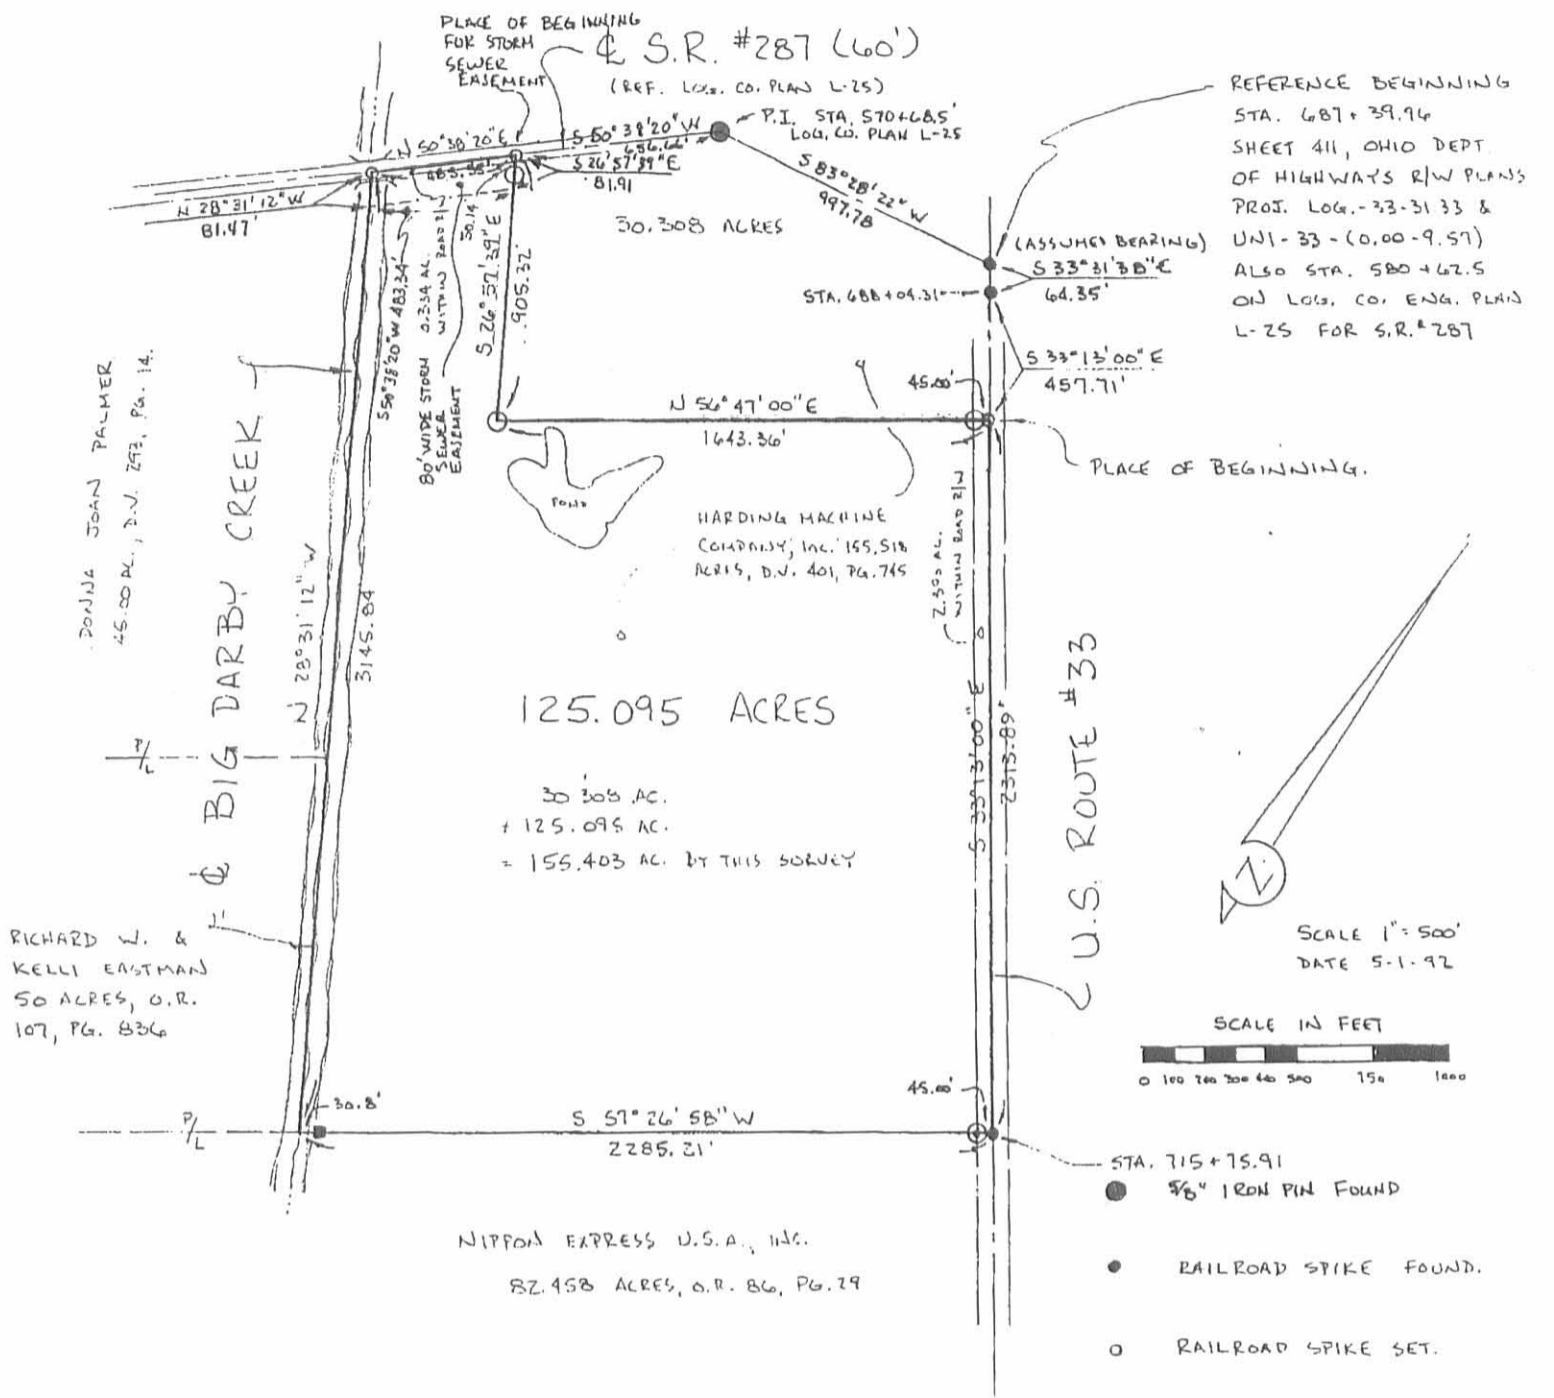 PLACE OF BEGINNING
FOR STORM
SEWER
EASEMENT
℄ S.R. #287 (60')
(REF. LOG. CO. PLAN L-25)
P.I. STA. 570+68.5'
LOG. CO. PLAN L-25
REFERENCE BEGINNING
STA. 687+39.96
SHEET 411, OHIO DEPT.
OF HIGHWAYS R/W PLANS
PROJ. LOG.-33-31.33 &
UNI-33-(0.00-9.57)
ALSO STA. 580+62.5
ON LOG. CO. ENG. PLAN
L-25 FOR S.R. #287
N 50°38'20" E
485.55'
S 50°38'20" W
656.66'
S 26°57'39" E
81.91
N 28°31'12" W
81.47'
S 83°28'22" W
997.78
30.308 ACRES
(ASSUMED BEARING)
S 33°31'38" E
64.35'
STA. 688+04.31
S 33°13'00" E
457.71'
S 50°38'20" W 483.34'
80' WIDE STORM
SEWER
EASEMENT
0.334 AC.
WITHIN ROAD R/W
50.14'
S 26°57'39" E
905.32'
45.00'
N 56°47'00" E
1643.36'
PLACE OF BEGINNING.
POND
HARDING MACHINE
COMPANY, INC. 155.518
ACRES, D.V. 401, PG. 745
2.390 AC.
WITHIN ROAD R/W
DONNA JOAN PALMER
45.00 AC., D.V. 293, PG. 14.
℄ BIG DARBY CREEK
N 28°31'12" W
3145.84
125.095 ACRES
30.308 AC.
+ 125.095 AC.
= 155.403 AC. BY THIS SURVEY
S 33°13'00" E
2313.89'
U.S. ROUTE #33
P/L
N
RICHARD W. &
KELLI EASTMAN
50 ACRES, O.R.
107, PG. 836
SCALE 1"=500'
DATE 5-1-92
SCALE IN FEET
0 100 200 300 400 500 750 1000
P/L
30.8'
S 57°26'58" W
2285.21'
45.00'
STA. 715+75.91
5/8" IRON PIN FOUND
RAILROAD SPIKE FOUND.
RAILROAD SPIKE SET.
NIPPON EXPRESS U.S.A., INC.
82.458 ACRES, O.R. 86, PG. 29